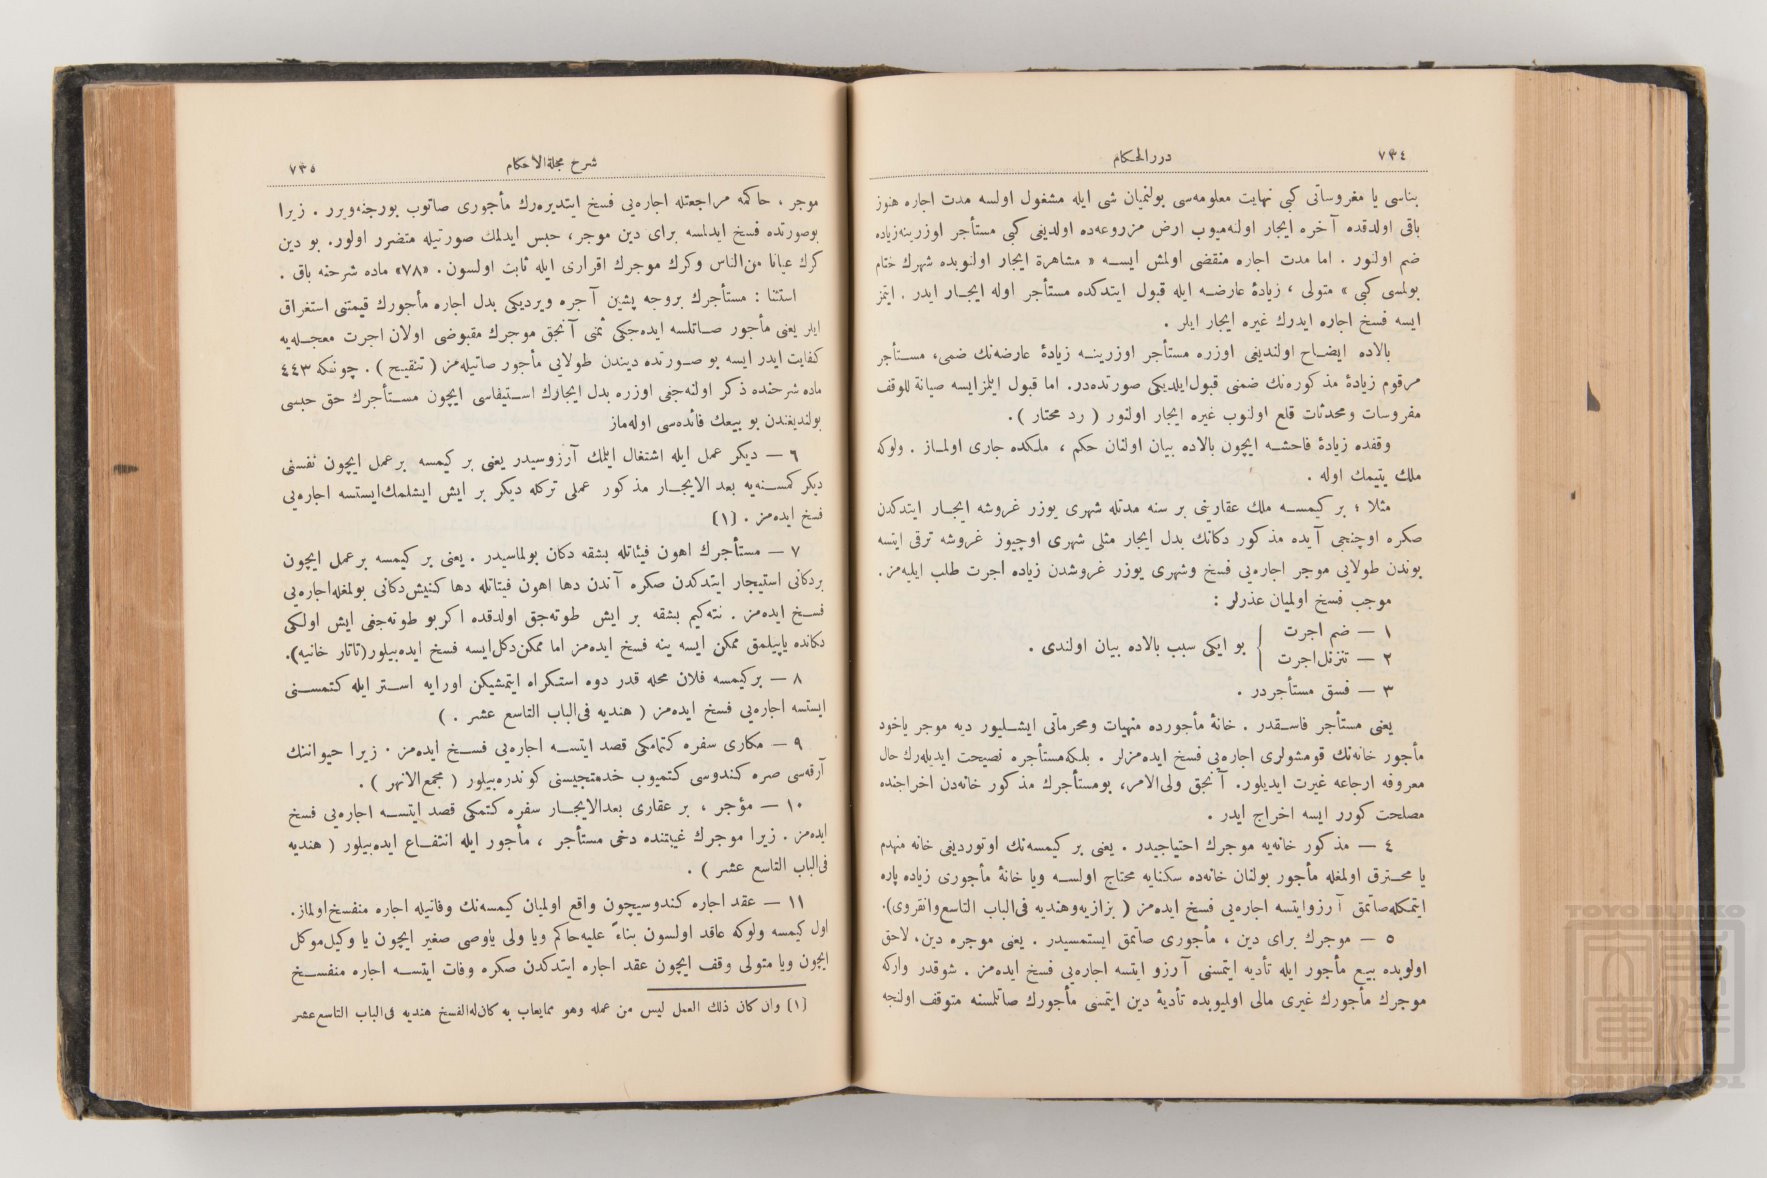 ٧٣٤
دررالحكام
بناسی یا مغروساتی كبی نهایت معلومه‌سی بولنمیان شی ایله مشغول اولسه مدت اجاره هنوز
باقی اولدقده آخره ایجار اولنه‌میوب ارض مزروعه‌ده اولدیغی كبی مستأجر اوزرینه‌زیاده
ضم اولنور . اما مدت اجاره منقضی اولمش ایسه « مشاهرة ایجار اولنوبده شهرك ختام
بولمسی كبی » متولی ، زیادۀ عارضه ایله قبول ایتدكده مستأجر اوله ایجار ایدر . ایتمز
ایسه فسخ اجاره ایدرك غیره ایجار ایلر .
بالاده ایضاح اولندیغی اوزره مستأجر اوزرینه زیادۀ عارضه‌نك ضمی، مستأجر
مرقوم زیادۀ مذكوره‌نك ضمنی قبول‌ایلدیكی صورتده‌در. اما قبول ایلمزایسه صیانة للوقف
مغروسات ومحدثات قلع اولنوب غیره ایجار اولنور ( رد محتار ).
وقفده زیادۀ فاحشه ایچون بالاده بیان اولنان حكم ، ملكده جاری اولماز . ولوكه
ملك یتیمك اوله .
مثلا ؛ بر كیمسه ملك عقارینی بر سنه مدتله شهری یوزر غروشه ایجار ایتدكدن
صكره اوچنجی آیده مذكور دكانك بدل ایجار مثلی شهری اوچیوز غروشه ترقی ایتسه
بوندن طولایی موجر اجاره‌یی فسخ وشهری یوزر غروشدن زیاده اجرت طلب ایلیه‌مز.
موجب فسخ اولمیان عذرلر :
١ — ضم اجرت
٢ — تنزیل‌اجرت
بو ایكی سبب بالاده بیان اولندی .
٣ — فسق مستأجردر .
یعنی مستأجر فاسقدر . خانۀ مأجورده منهیات ومحرماتی ایشلیور دیه موجر یاخود
مأجور خانه‌نك قومشولری اجاره‌یی فسخ ایده‌مزلر . بلكه‌مستأجره نصیحت ایدیله‌رك حال
معروفه ارجاعه غیرت ایدیلور. آنجق ولی‌الامر، بومستأجرك مذكور خانه‌دن اخراجنده
مصلحت كورر ایسه اخراج ایدر .
٤ — مذكور خانه‌یه موجرك احتیاجیدر . یعنی بر كیمسه‌نك اوتوردیغی خانه منهدم
یا محترق اولمغله مأجور بولنان خانه‌ده سكنایه محتاج اولسه ویا خانۀ مأجوری زیاده پاره
ایتمكله‌صاتمق آرزوایتسه اجاره‌یی فسخ ایده‌مز ( بزازیه‌وهندیه فی‌الباب التاسع‌وانقروی).
٥ — موجرك برای دین ، مأجوری صاتمق ایستمسیدر . یعنی موجره دین، لاحق
اولوبده بیع مأجور ایله تأدیه ایتمسنی آرزو ایتسه اجاره‌یی فسخ ایده‌مز . شوقدر واركه
موجرك مأجورك غیری مالی اولمیوبده تأدیۀ دین ایتمسی مأجورك صاتلمسنه متوقف اولنجه
شرح مجلةالاحكام
٧٣٥
موجر ، حاكمه مراجعتله اجاره‌یی فسخ ایتدیره‌رك مأجوری صاتوب بورجنه‌ویرر . زیرا
بوصورتده فسخ ایدلمسه برای دین موجر، حبس ایدلمك صورتیله متضرر اولور. بو دین
كرك عیانا من‌الناس وكرك موجرك اقراری ایله ثابت اولسون. «٧٨» ماده شرحنه باق .
استثنا : مستأجرك بروجه پشین آجره ویردیكی بدل اجاره مأجورك قیمتنی استغراق
ایلر یعنی مأجور صاتلسه ایده‌جكی ثمنی آنجق موجرك مقبوضی اولان اجرت معجله‌یه
كفایت ایدر ایسه بو صورتده دیندن طولایی مأجور صاتیله‌مز ( تنقیح ) . چونكه ٤٤٣
ماده شرحنده ذكر اولنه‌جغی اوزره بدل ایجارك استیفاسی ایچون مستأجرك حق حبسی
بولندیغندن بو بیعك فائده‌سی اوله‌ماز
٦ — دیكر عمل ایله اشتغال ایتمك آرزوسیدر یعنی بر كیمسه برعمل ایچون نفسنی
دیكر كمسنه‌یه بعد الایجار مذكور عملی تركله دیكر بر ایش ایشلمك‌ایستسه اجاره‌یی
فسخ ایده‌مز . (١)
٧ — مستأجرك اهون فیئاتله بشقه دكان بولماسیدر . یعنی بر كیمسه برعمل ایچون
بردكانی استیجار ایتدكدن صكره آندن دها اهون فیئاتله دها كنیش‌دكانی بولمغله‌اجاره‌یی
فسخ ایده‌مز . نته‌كیم بشقه بر ایش طوته‌جق اولدقده اكربو طوته‌جغی ایش اولكی
دكانده یاپیلمق ممكن ایسه ینه فسخ ایده‌مز اما ممكن‌دكل‌ایسه فسخ ایده‌بیلور(تاتار خانیه).
٨ — بركیمسه فلان محله قدر دوه استكراه ایتمشیكن اورایه استر ایله كتمسنی
ایستسه اجاره‌یی فسخ ایده‌مز ( هندیه فی‌الباب التاسع عشر . )
٩ — مكاری سفره كتمامكی قصد ایتسه اجاره‌یی فسخ ایده‌مز . زیرا حیواننك
آرقه‌سی صره كندوسی كتمیوب خدمتجیسنی كوندره‌بیلور ( مجمع‌الانهر ) .
١٠ — مؤجر ، بر عقاری بعدالایجار سفره كتمكی قصد ایتسه اجاره‌یی فسخ
ایده‌مز . زیرا موجرك غیابنده دخی مستأجر ، مأجور ایله انتفاع ایده‌بیلور ( هندیه
فی‌الباب التاسع عشر ) .
١١ — عقد اجاره كندوسیچون واقع اولمیان كیمسه‌نك وفاتیله اجاره منفسخ‌اولماز.
اول كیمسه ولوكه عاقد اولسون بناءً علیه‌حاكم ویا ولی یاوصی صغیر ایچون یا وكیل‌موكل
ایچون ویا متولی وقف ایچون عقد اجاره ایتدكدن صكره وفات ایتسه اجاره منفسخ
(١) وان كان ذلك العمل لیس من عمله وهو ممایعاب به كان‌له‌الفسخ هندیه فی‌الباب التاسع‌عشر
TOYO BUNKO